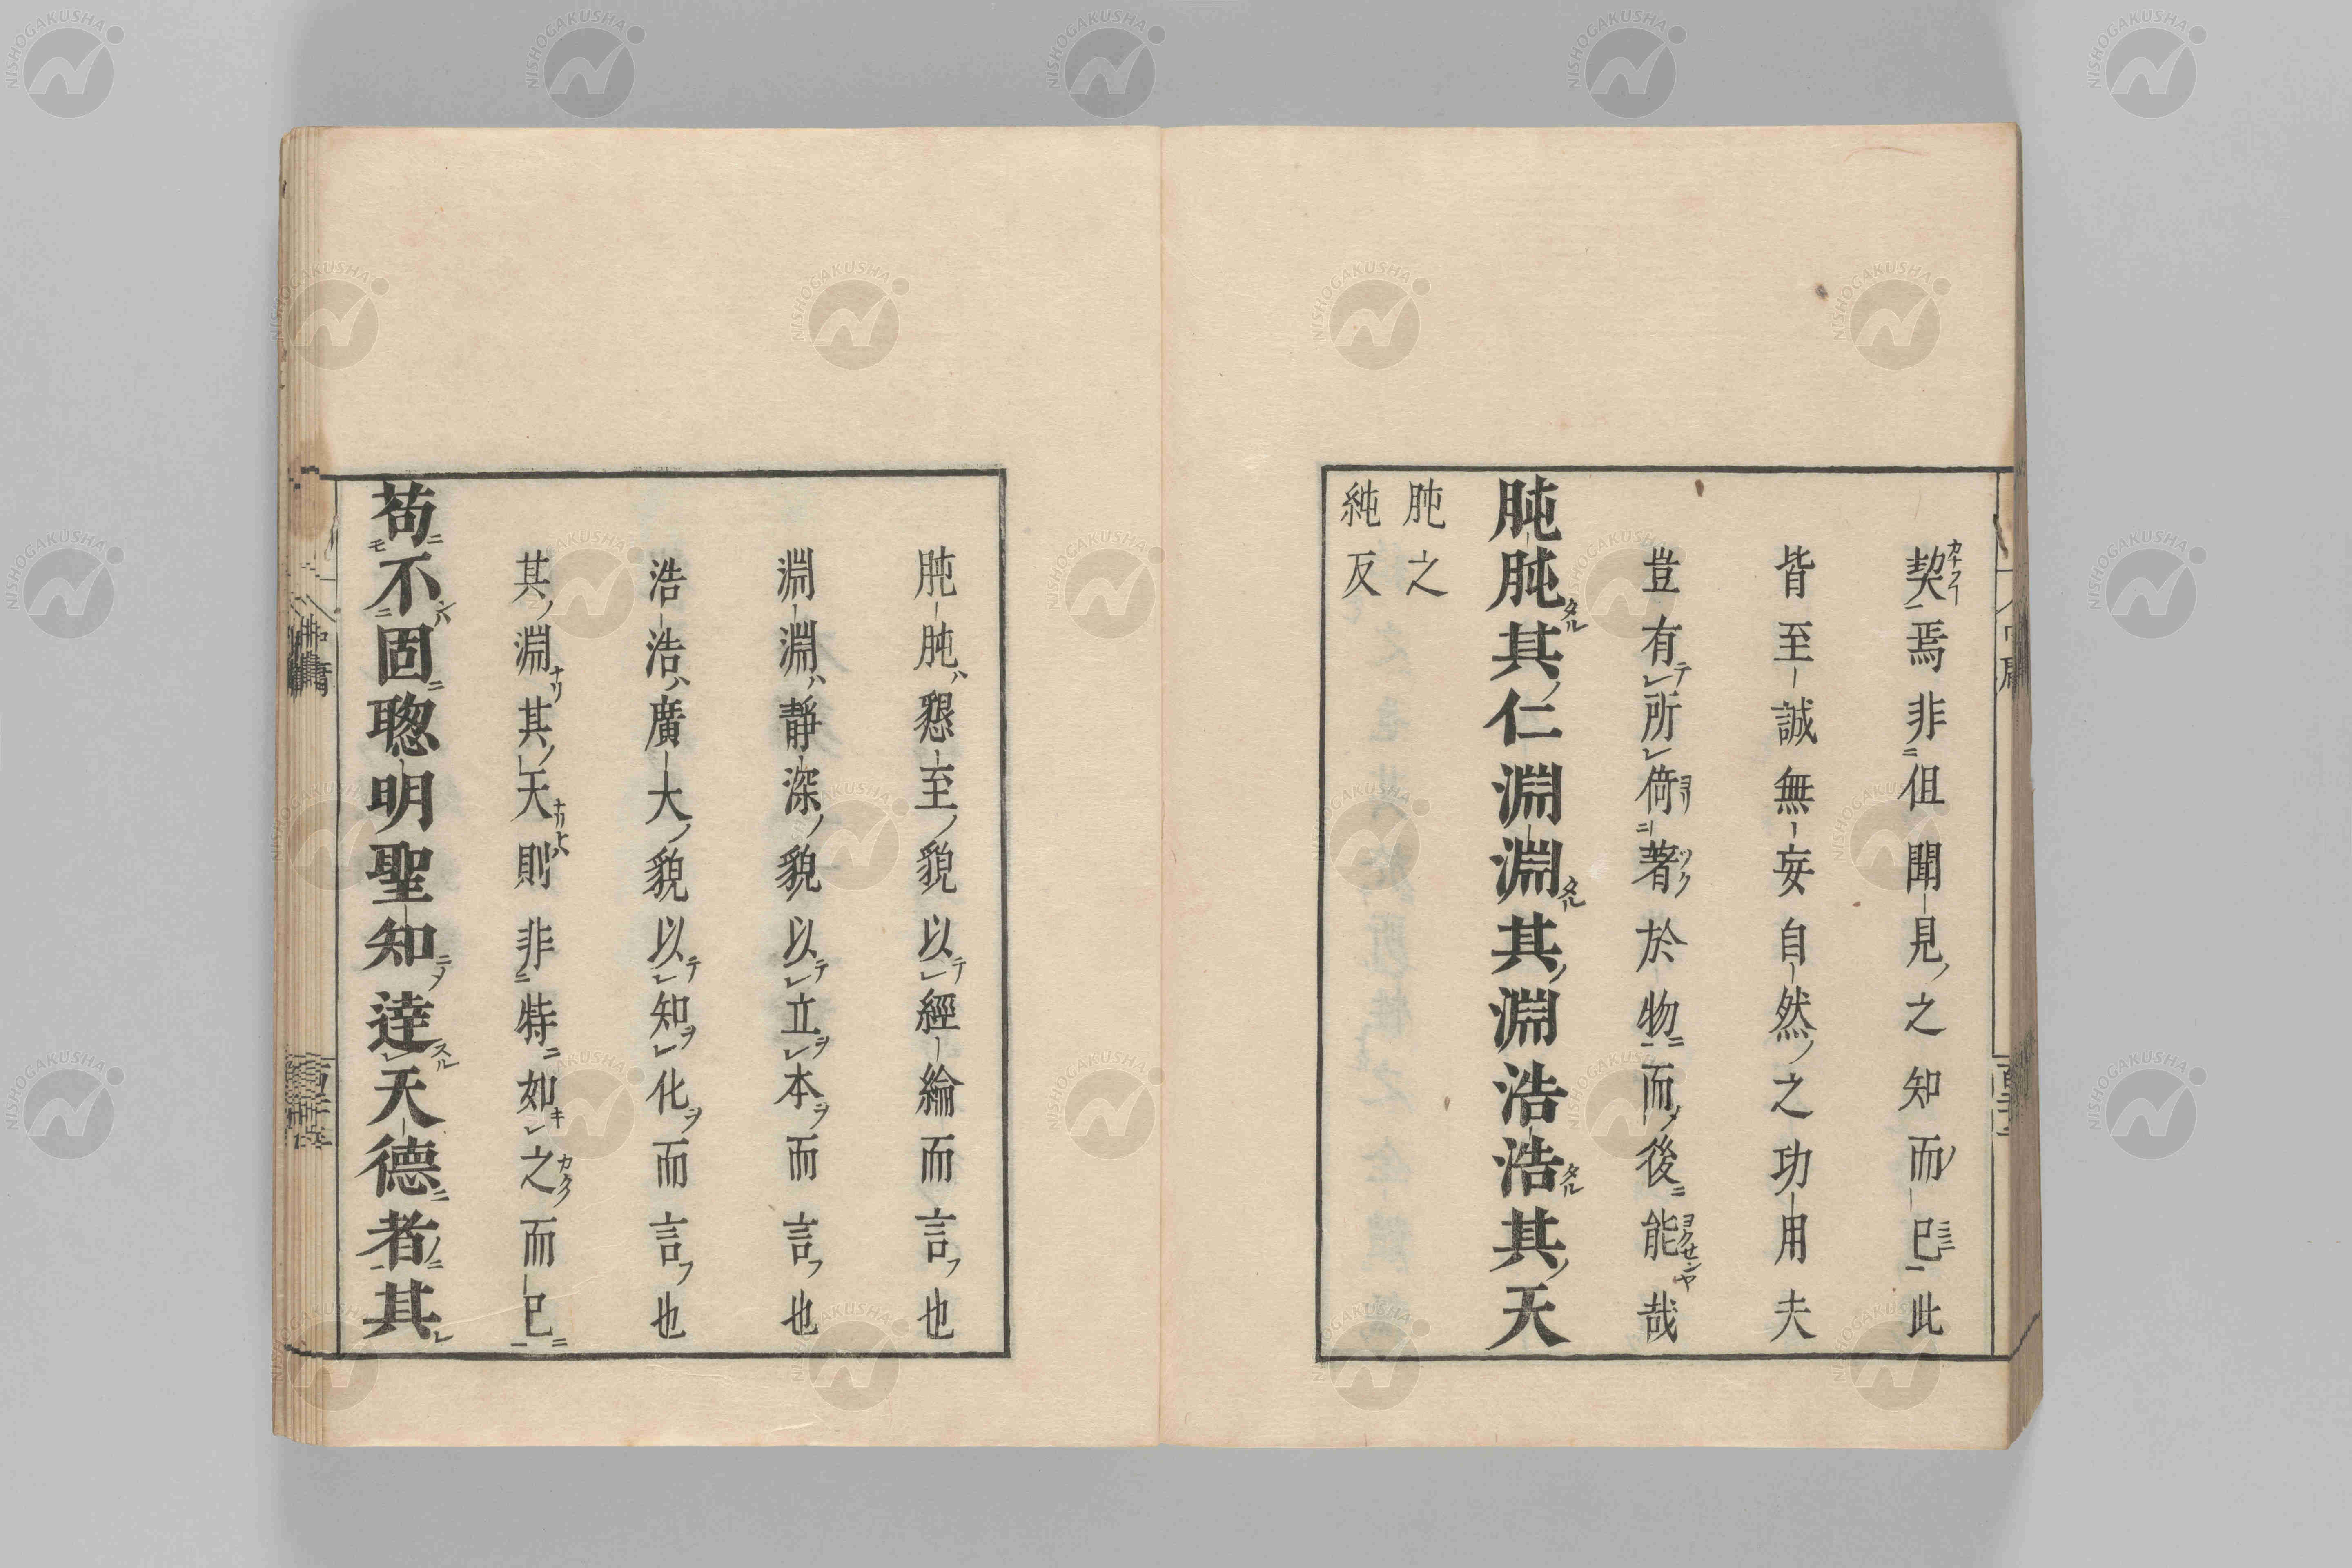 契焉非但聞見之知而已此
皆至誠無妄自然之功用夫
豈有所倚著於物而後能哉
肫肫其仁淵淵其淵浩浩其天
肫之
純反
肫肫懇至貌以經綸而言也
淵淵靜深貌以立本而言也
浩浩廣大貌以知化而言也
其淵其天則非特如之而已
苟不固聰明聖知達天德者其
中庸